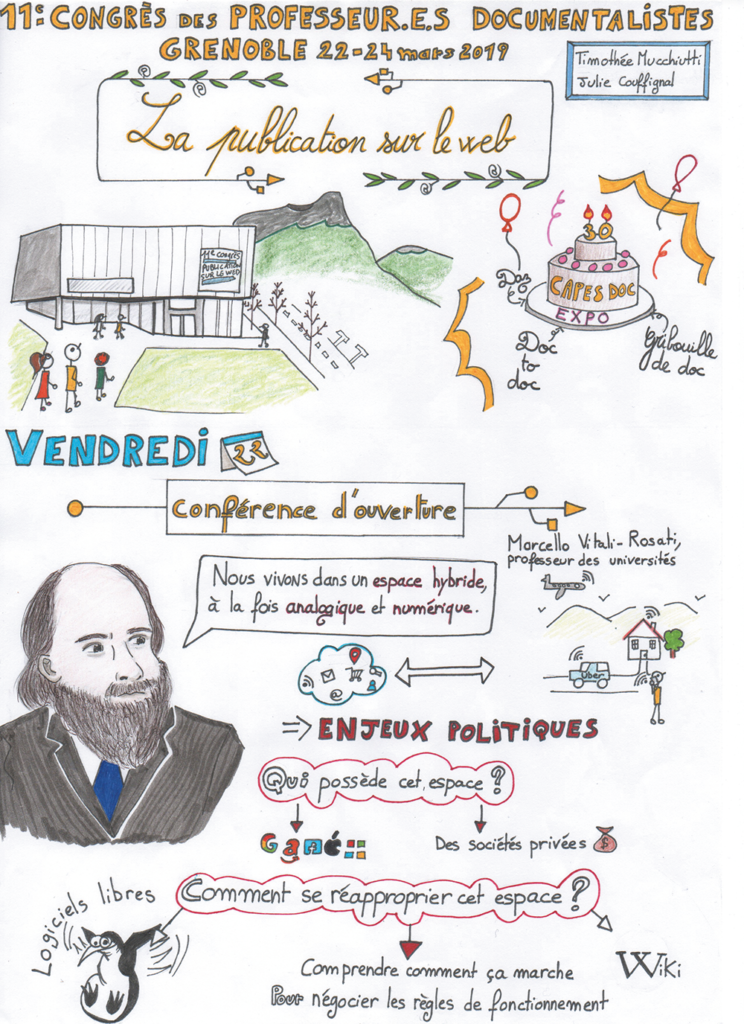 11e CONGRÈS DES PROFESSEUR.E.S DOCUMENTALISTES
GRENOBLE 22-24 mars 2019
Timothée Mucchiutti
Julie Couffignal
La publication sur le web
11e CONGRÈS
PUBLICATION
SUR LE WEB
30
CAPES DOC
EXPO
Doc
to
doc
Gribouille
de doc
VENDREDI 22
Conférence d'ouverture
Marcello Vitali-Rosati,
professeur des universités
Nous vivons dans un espace hybride,
à la fois analogique et numérique.
@
Uber
⇒ ENJEUX POLITIQUES
Qui possède cet espace ?
Gané
Des sociétés privées $
Logiciels libres
Comment se réapproprier cet espace ?
Comprendre comment ça marche
Pour négocier les règles de fonctionnement
Wiki